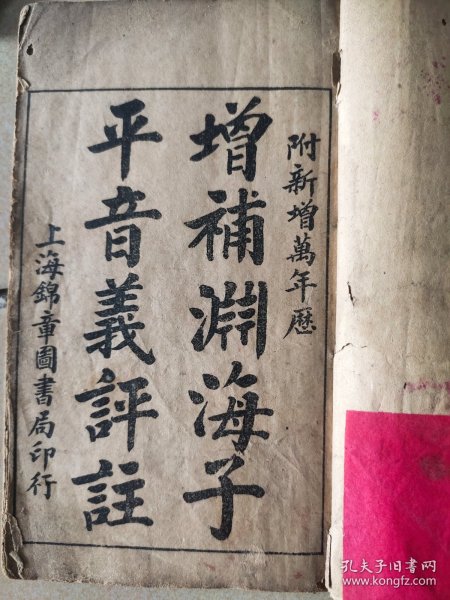 附新增萬年曆
增補淵海子
平音義評註
上海錦章圖書局印行
孔夫子旧书网
www.kongfz.com